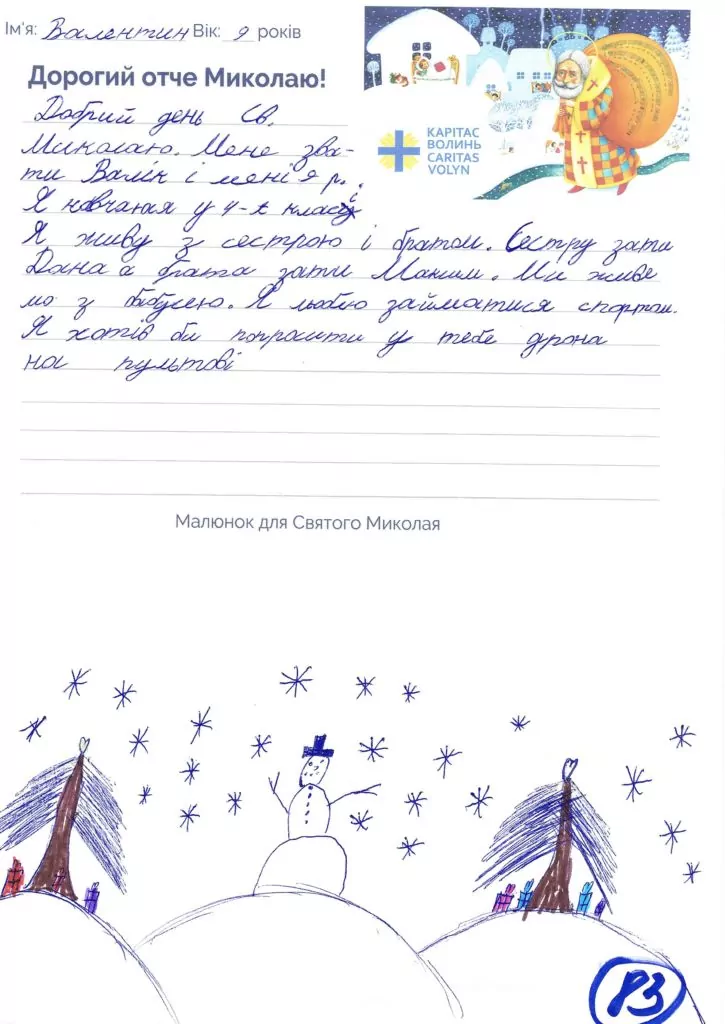 Ім'я: Валентин Вік: 9 років
КАРІТАС
ВОЛИНЬ
CARITAS
VOLYN
Дорогий отче Миколаю!
Добрий день Св.
Миколаю. Мене зва-
ти Валік і мені 9 р.
Я навчаюя у 4-А класі
Я живу з сестрою і братом. Сестру зати
Дана а брата зати Максим. Ми живе
мо з бабусею. Я люблю займатися спортом.
Я хотів би попрасити у тебе дрона
на пультові
Малюнок для Святого Миколая
83